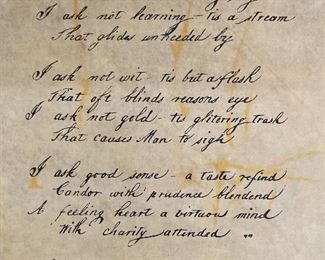 I ask not learning - 'tis a stream
That glides unheeded by
I ask not wit - tis but a flash
That oft blinds reasons eye
I ask not gold - tis glitering trash
That causes Man to sigh
I ask good sense - a taste refind
Candor with prudence blendend
A feeling heart a virtuous mind
With charity attended "